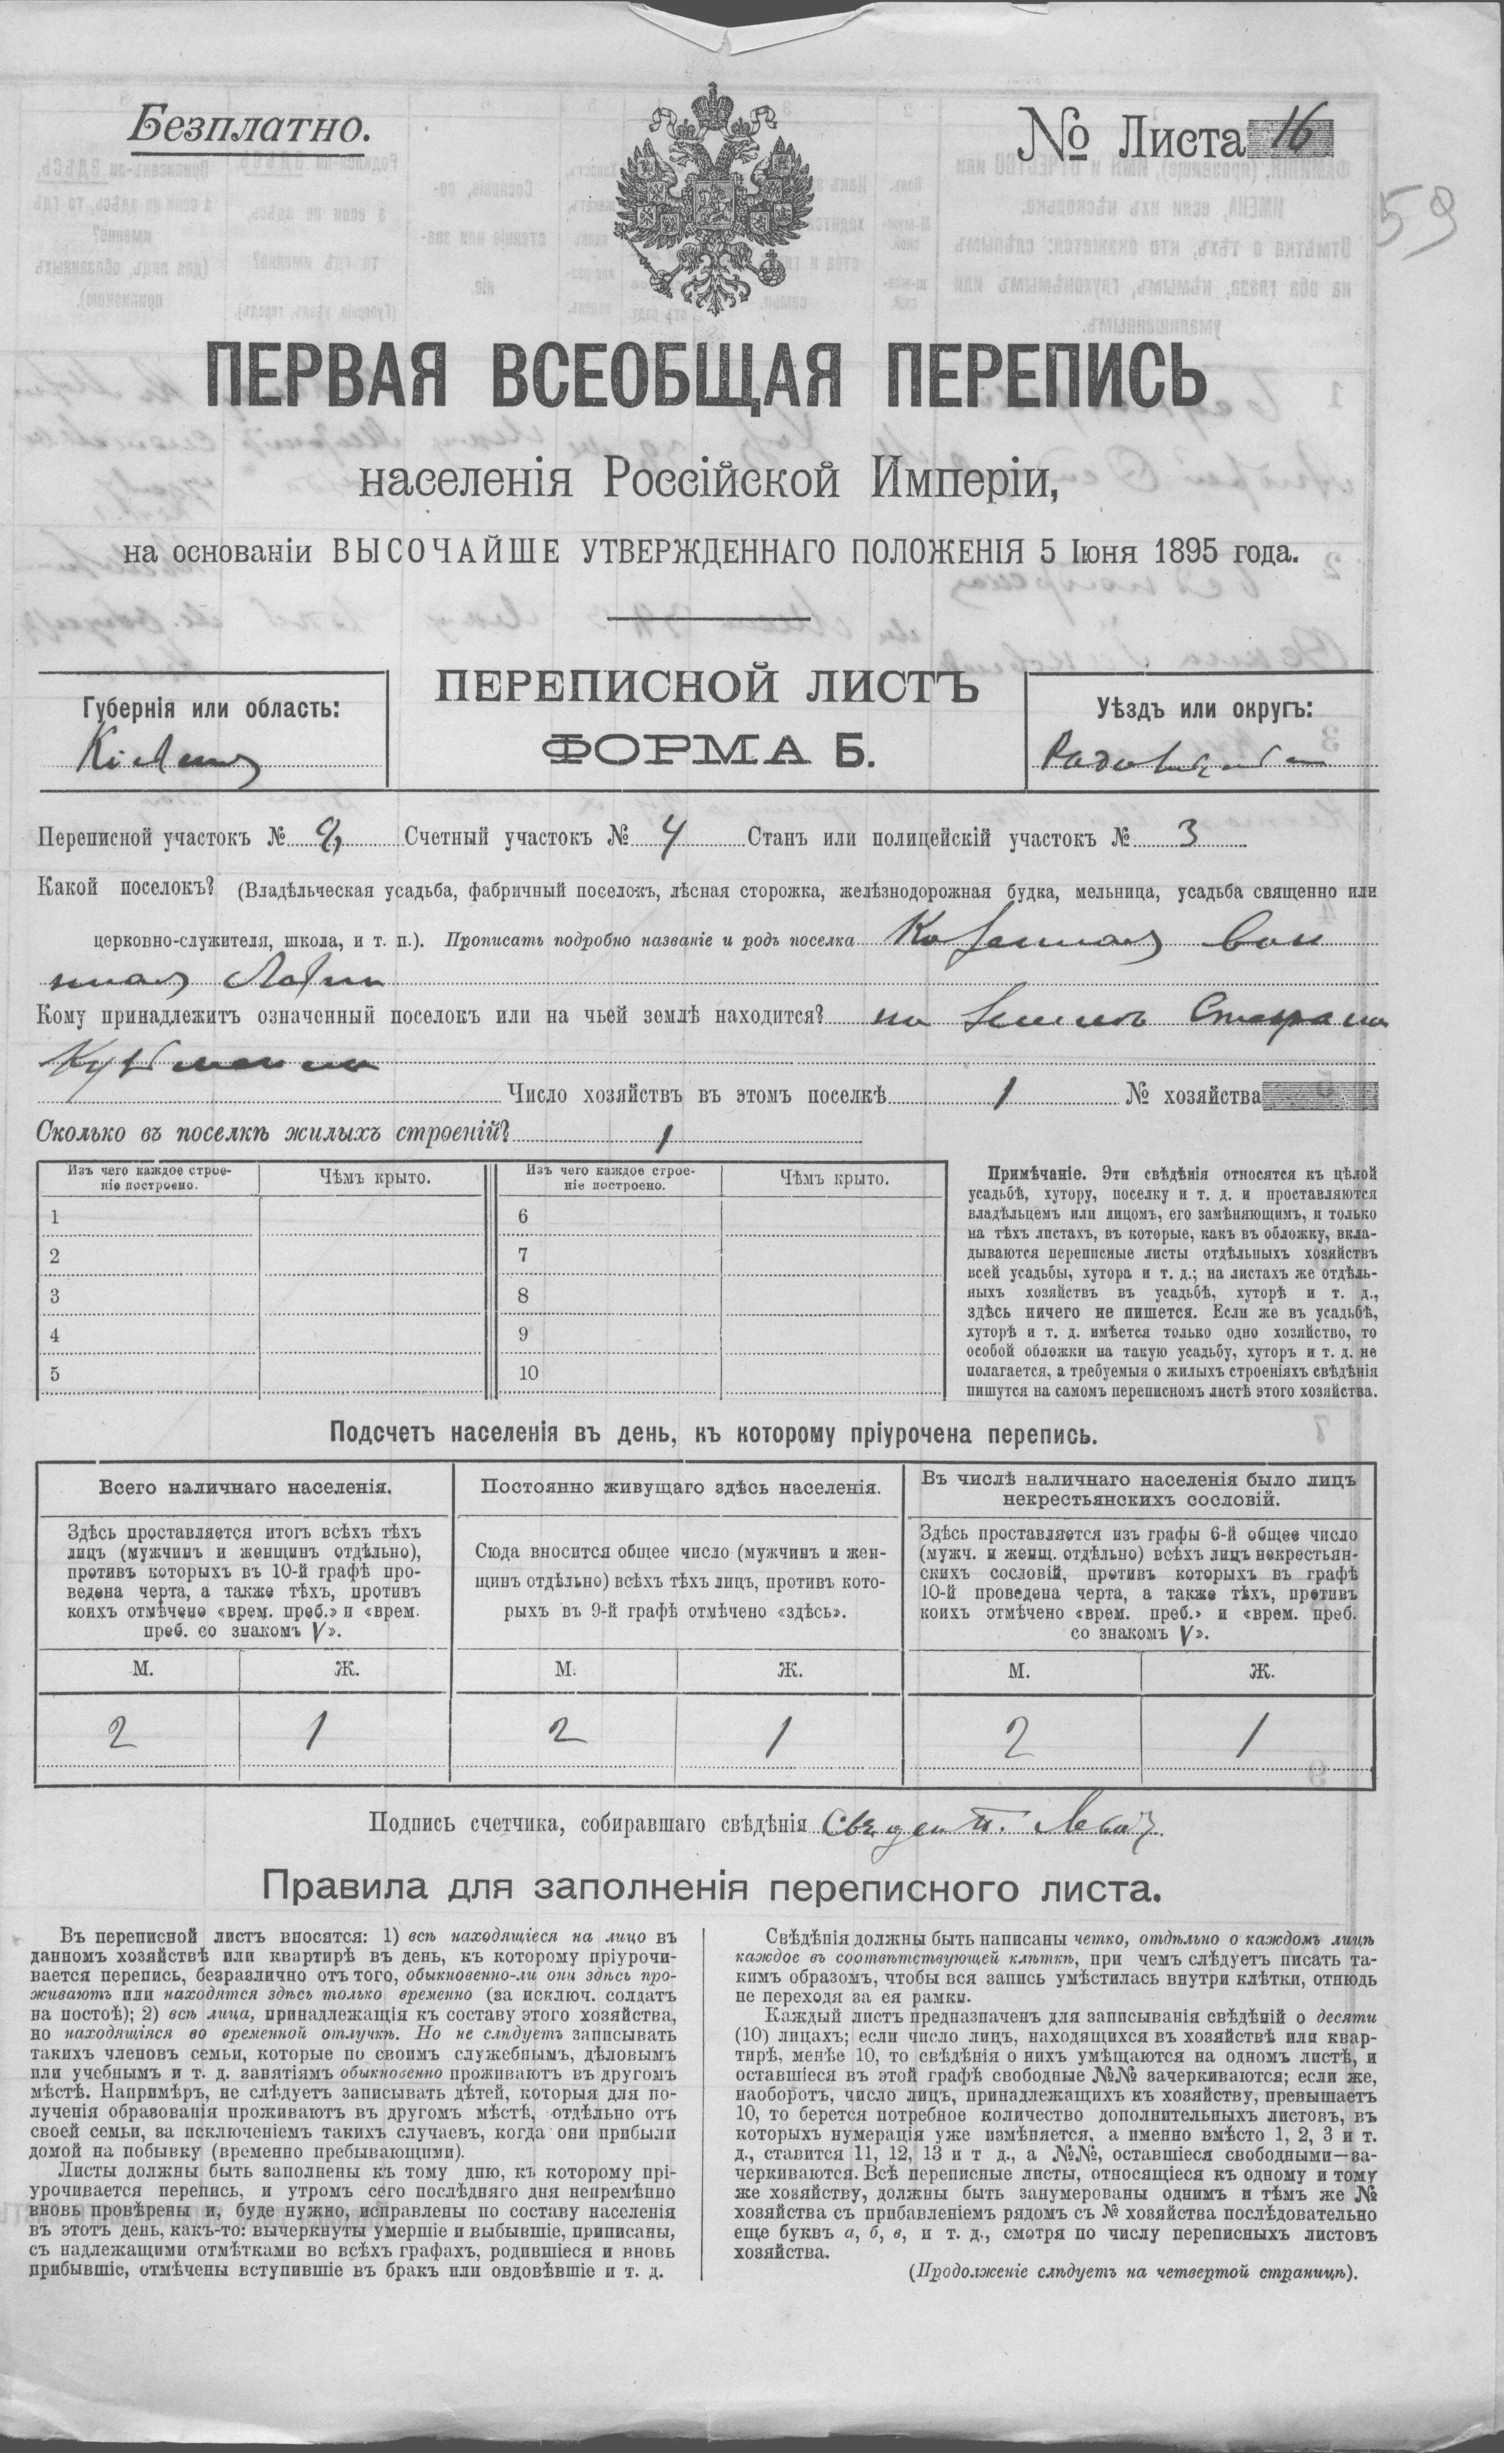 Безплатно.
№ Листа 16
59
ПЕРВАЯ ВСЕОБЩАЯ ПЕРЕПИСЬ
населенія Россійской Имперіи,
на основаніи ВЫСОЧАЙШЕ УТВЕРЖДЕННАГО ПОЛОЖЕНІЯ 5 Іюня 1895 года.
Губернія или область:
ПЕРЕПИСНОЙ ЛИСТЪ
ФОРМА Б.
Уѣздъ или округъ:
Переписной участокъ № Счетный участокъ № 4 Станъ или полицейскій участокъ № 3
Какой поселокъ? (Владѣльческая усадьба, фабричный поселокъ, лѣсная сторожка, желѣзнодорожная будка, мельница, усадьба священно или
церковно-служителя, школа, и т. п.). Прописать подробно названіе и родъ поселка Казенная вин
ная лавка
Кому принадлежитъ означенный поселокъ или на чьей землѣ находится? на
Число хозяйствъ въ этомъ поселкѣ 1 № хозяйства
Сколько въ поселкѣ жилыхъ строеній? 1
Изъ чего каждое строе-
ніе построено.
Чѣмъ крыто.
Изъ чего каждое строе-
ніе построено.
Чѣмъ крыто.
1
2
3
4
5
6
7
8
9
10
Примѣчаніе. Эти свѣдѣнія относятся къ цѣлой
усадьбѣ, хутору, поселку и т. д. и проставляются
владѣльцемъ или лицомъ, его замѣняющимъ, и только
на тѣхъ листахъ, въ которые, какъ въ обложку, вкла-
дываются переписные листы отдѣльныхъ хозяйствъ
всей усадьбы, хутора и т. д.; на листахъ же отдѣль-
ныхъ хозяйствъ въ усадьбѣ, хуторѣ и т. д.,
здѣсь ничего не пишется. Если же въ усадьбѣ,
хуторѣ и т. д. имѣется только одно хозяйство, то
особой обложки на такую усадьбу, хуторъ и т. д. не
полагается, а требуемыя о жилыхъ строеніяхъ свѣдѣнія
пишутся на самомъ переписномъ листѣ этого хозяйства.
Подсчетъ населенія въ день, къ которому пріурочена перепись.
Всего наличнаго населенія.
Здѣсь проставляется итогъ всѣхъ тѣхъ
лицъ (мужчинъ и женщинъ отдѣльно),
противъ которыхъ въ 10-й графѣ про-
ведена черта, а также тѣхъ, противъ
коихъ отмѣчено «врем. преб.» и «врем.
преб. со знакомъ V».
М. Ж.
2 1
Постоянно живущаго здѣсь населенія.
Сюда вносится общее число (мужчинъ и жен-
щинъ отдѣльно) всѣхъ тѣхъ лицъ, противъ кото-
рыхъ въ 9-й графѣ отмѣчено «здѣсь».
М. Ж.
2 1
Въ числѣ наличнаго населенія было лицъ
некрестьянскихъ сословій.
Здѣсь проставляется изъ графы 6-й общее число
(мужч. и женщ. отдѣльно) всѣхъ лицъ некрестьян-
скихъ сословій, противъ которыхъ въ графѣ
10-й проведена черта, а также тѣхъ, противъ
коихъ отмѣчено «врем. преб.» и «врем. преб.
со знакомъ V».
М. Ж.
2 1
Подпись счетчика, собиравшаго свѣдѣнія
Правила для заполненія переписного листа.
Въ переписной листъ вносятся: 1) всѣ находящіеся на лицо въ
данномъ хозяйствѣ или квартирѣ въ день, къ которому пріурочи-
вается перепись, безразлично отъ того, обыкновенно-ли они здѣсь про-
живаютъ или находятся здѣсь только временно (за исключ. солдатъ
на постоѣ); 2) всѣ лица, принадлежащія къ составу этого хозяйства,
но находящіяся во временной отлучкѣ. Но не слѣдуетъ записывать
такихъ членовъ семьи, которые по своимъ служебнымъ, дѣловымъ
или учебнымъ и т. д. занятіямъ обыкновенно проживаютъ въ другомъ
мѣстѣ. Напримѣръ, не слѣдуетъ записывать дѣтей, которыя для по-
лученія образованія проживаютъ въ другомъ мѣстѣ, отдѣльно отъ
своей семьи, за исключеніемъ такихъ случаевъ, когда они прибыли
домой на побывку (временно пребывающими).
Листы должны быть заполнены къ тому дню, къ которому прі-
урочивается перепись, и утромъ сего послѣдняго дня непремѣнно
вновь провѣрены и, буде нужно, исправлены по составу населенія
въ этотъ день, какъ-то: вычеркнуты умершіе и выбывшіе, приписаны,
съ надлежащими отмѣтками во всѣхъ графахъ, родившіеся и вновь
прибывшіе, отмѣчены вступившіе въ бракъ или овдовѣвшіе и т. д.
Свѣдѣнія должны быть написаны четко, отдѣльно о каждомъ лицѣ
каждое въ соотвѣтствующей клѣткѣ, при чемъ слѣдуетъ писать та-
кимъ образомъ, чтобы вся запись умѣстилась внутри клѣтки, отнюдь
не переходя за ея рамки.
Каждый листъ предназначенъ для записыванія свѣдѣній о десяти
(10) лицахъ; если число лицъ, находящихся въ хозяйствѣ или квар-
тирѣ, менѣе 10, то свѣдѣнія о нихъ умѣщаются на одномъ листѣ, и
оставшіеся въ этой графѣ свободные №№ зачеркиваются; если же,
наоборотъ, число лицъ, принадлежащихъ къ хозяйству, превышаетъ
10, то берется потребное количество дополнительныхъ листовъ, въ
которыхъ нумерація уже измѣняется, а именно вмѣсто 1, 2, 3 и т.
д., ставится 11, 12, 13 и т д., а №№, оставшіеся свободными—за-
черкиваются. Всѣ переписные листы, относящіеся къ одному и тому
же хозяйству, должны быть занумерованы однимъ и тѣмъ же №
хозяйства съ прибавленіемъ рядомъ съ № хозяйства послѣдовательно
еще буквъ а, б, в, и т. д., смотря по числу переписныхъ листовъ
хозяйства.
(Продолженіе слѣдуетъ на четвертой страницѣ).